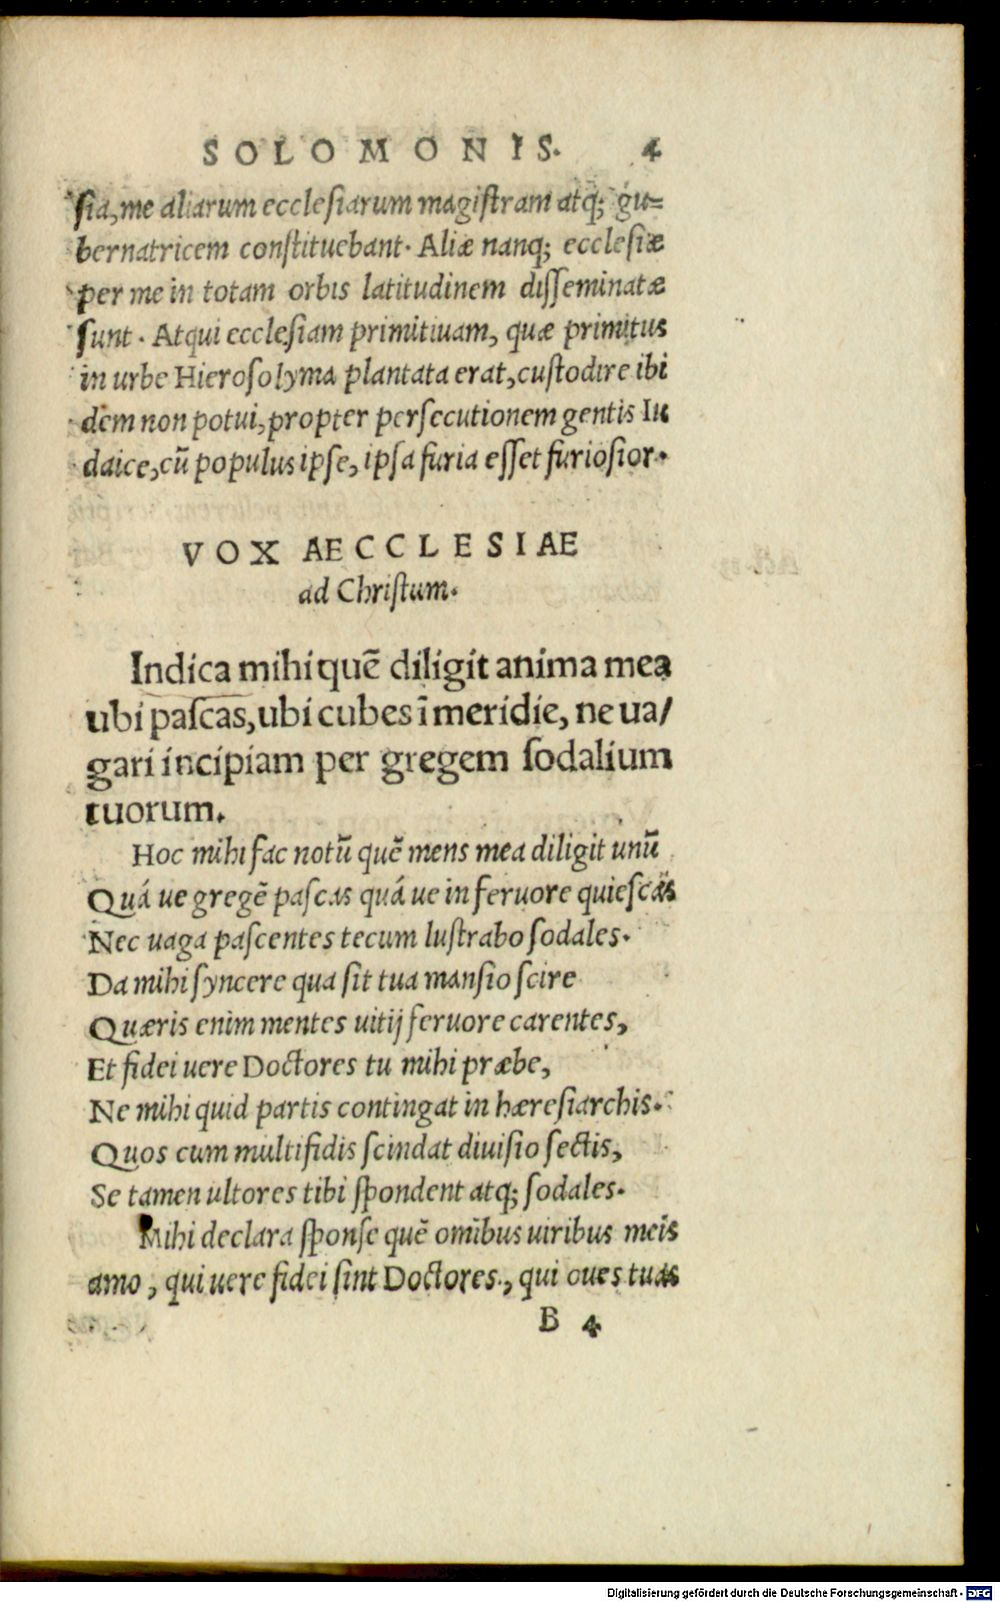 SOLOMONIS. 4
sia, me aliarum ecclesiarum magistram atq; gu=
bernatricem constituebant. Aliæ nanq; ecclesiæ
per me in totam orbis latitudinem disseminatæ
sunt. Atqui ecclesiam primitiuam, quæ primitus
in urbe Hierosolyma plantata erat, custodire ibi
dem non potui, propter persecutionem gentis Iu
daice, cū populus ipse, ipsa furia esset furiosior.
VOX AECCLESIAE
ad Christum.
Indica mihi quē diligit anima mea
ubi pascas, ubi cubes ī meridie, ne ua/
gari incipiam per gregem sodalium
tuorum.
Hoc mihi fac notū quē mens mea diligit unū
Quá ue gregē pascas quá ue in feruore quiescas
Nec uaga pascentes tecum lustrabo sodales.
Da mihi syncere qua sit tua mansio scire
Quæris enim mentes uitij feruore carentes,
Et fidei uere Doctores tu mihi præbe,
Ne mihi quid partis contingat in hæresiarchis.
Quos cum multifidis scindat diuisio sectis,
Se tamen ultores tibi spondent atq; sodales.
Mihi declara sponse quē omībus uiribus meis
amo, qui uere fidei sint Doctores., qui oues tuas
B 4
Digitalisierung gefördert durch die Deutsche Forschungsgemeinschaft - DFG